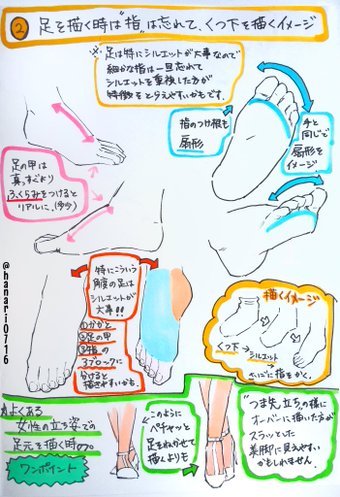 ② 足を描く時は"指"は忘れて、くつ下を描くイメージ
※足は特にシルエットが大事なので
細かな指は一旦忘れて
シルエットを重視した方が
特徴をとらえやすいかもです。
指のつけ根も
扇形
手と
同じで
扇形を
イメージ
足の甲は
真っすぐより
ふくらみをつけると
リアルに。(多少)
@hanari0716
特にこういう
角度の足は
シルエットが
大事!!
①かかと
②足の甲
③指の
3ブロックに
分けると
描きやすいかも。
描くイメージ
くつ下
→
シルエット
→
さいごに指をかく。
よくある
女性の立ち姿での
足元を描く時の。
ワンポイント
←このように
ペチャッと
足をねかせて
描くよりも
"つま先立ち"の様に
オーバーに描いた方が
スラッとした
美脚に見えやすい
かもしれません。